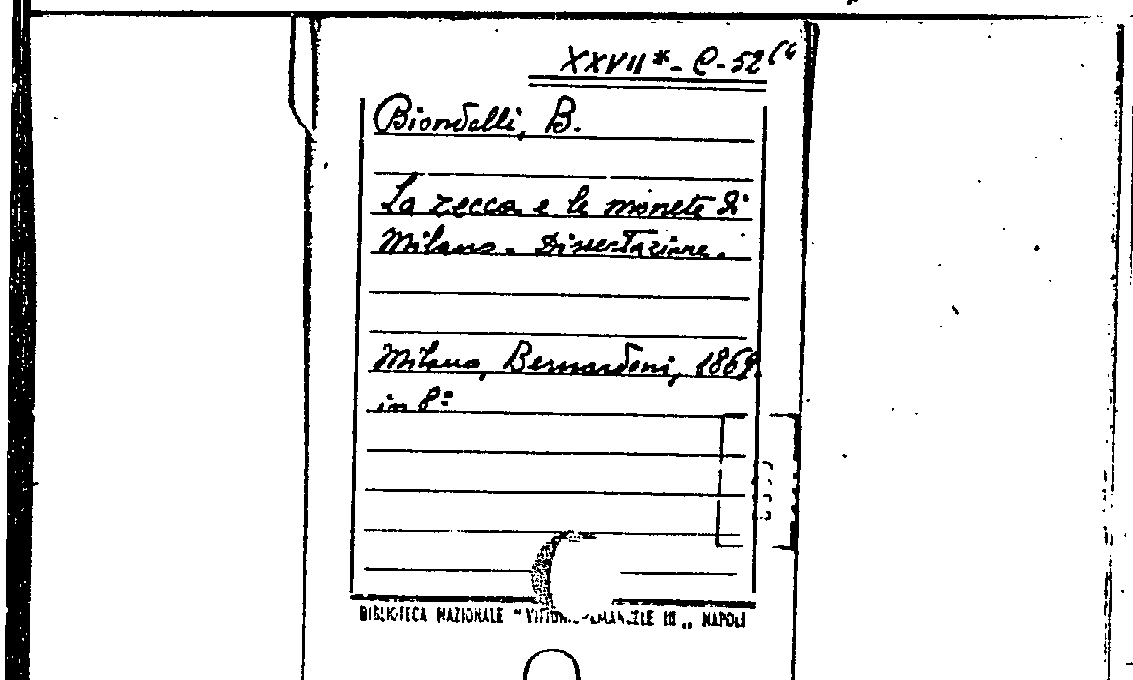 XXVII*- C-52 (4
Biondelli, B.
La zecca e le monete di
Milano. Dissertazione.
Milano, Bernardoni, 1869.
in 8º
BIBLIOTECA NAZIONALE "VITTORIO EMANUELE III" NAPOLI